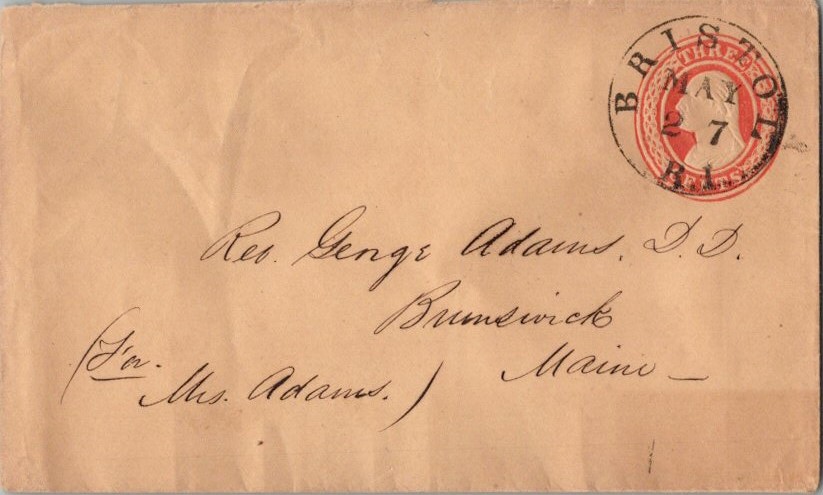 BRISTOL
MAY
27
R.I.
THREE
CENTS
Rev. George Adams, D.D.
Brunswick
Maine —
(For.
Mrs. Adams.)